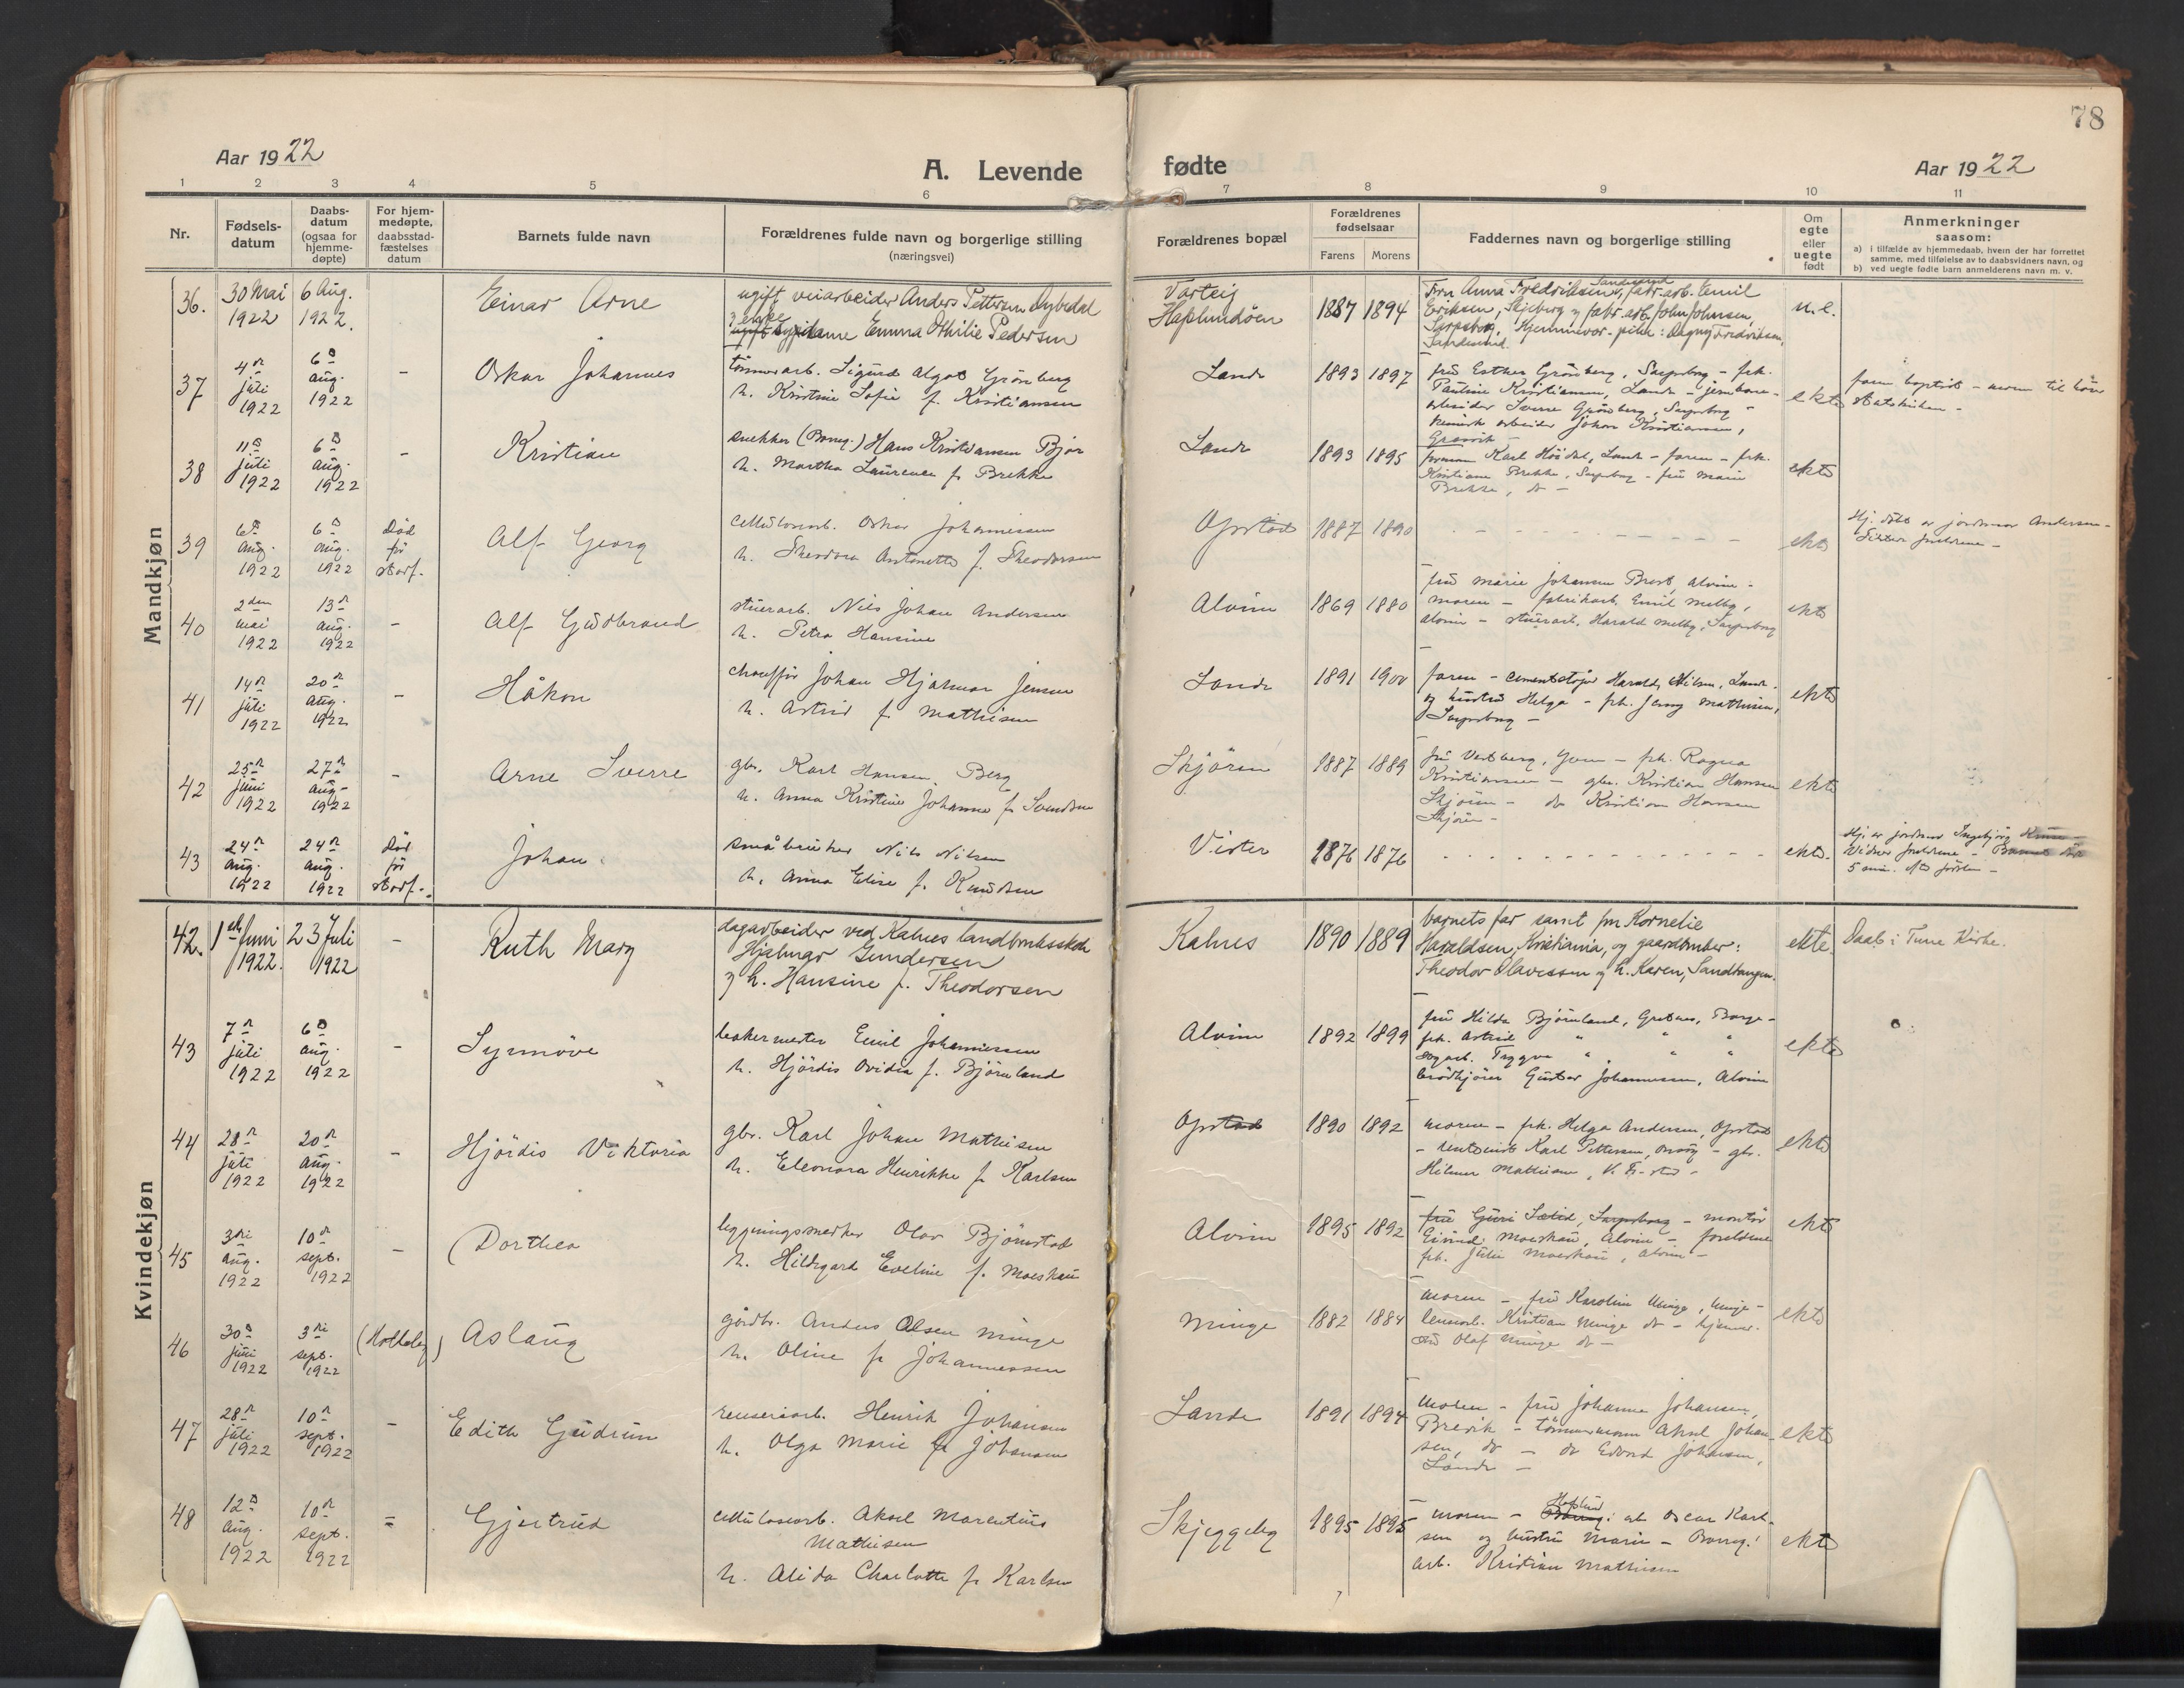 78
Aar 1922
A. Levende fødte
Aar 1922
1 2 3 4 5 6 7 8 9 10 11
Nr.
Fødsels-
datum
Daabs-
datum
(ogsaa for
hjemme-
døpte)
For hjem-
medøpte,
daabsstad-
fæstelses
datum
Barnets fulde navn
Forældrenes fulde navn og borgerlige stilling
(næringsvei)
Forældrenes bopæl
Forældrenes
fødselsaar
Farens Morens
Faddernes navn og borgerlige stilling
Om
egte
eller
uegte
født
Anmerkninger
saasom:
a) i tilfælde av hjemmedaab, hvem der har forrettet
samme, med tilføielse av to daabsvidners navn, og
b) ved uegte fødte barn anmelderens navn m. v.
Mandkjøn
36. 30 Mai 1922
6 Aug. 1922.
Einar Arne
ugift veiarbeider Anders Pettersen
Emma Othilie Pedersen
Varteig
1887 1894
Fru Anna Fredriksen, Sandesund, fabr. arb. Emil
Eriksen, Skjeberg og fabr. arb. John Johnsen,
Sarpsborg, Fredriksen,
Sandesund.
u.e.
37 4de juli 1922
6te aug. 1922
-
Oskar Johannes
tömmerarb. Sigurd Algot Grönberg
h. Kristine Sofie f. Kristiansen
Lande
1893 1897
frü Esther Grönberg, Sarpsborg - frk.
Pauline Kristiansen, Lande -
arbeider Sverre Grönberg, Sarpsborg -
arbeider Johan Kristiansen,
Greåvik -
ekte
faren baptist - moren til hör
statskirken -
38 11te juli 1922
6te aug. 1922
-
Kristian
snekker (Borreg.) Hans Kristiansen Bjor
h. Martha Laurence f. Brekke
Lande
1893 1895
Karl Höidal, Lande - faren - frk.
Kristiane Brekke, Sarpsborg - frü Marie
Brekke, do -
ekte
39 6te aug. 1922
6te aug. 1922
Död
för
stadf.
Alf Georg
cellülosearb. Oskar Johannessen
h. Theodora Antonette f. Theodorsen
Opstad
1887 1890
ekte
Hj. döbt av jordmor Andersen -
foreldrene -
40 2den mai 1922
13de aug. 1922
-
Alf Güdbrand
stüerarb. Nils Johan Andersen
h. Petra Hansine
Alvim
1869 1880
frü Marie Johansen Brest, Alvim -
moren - fabrikarb. Emil Melby,
Alvim - stüerarb. Harald Melby, Sarpsborg
ekte
41 14de juli 1922
20de aug. 1922
-
Håkon
chaufför Johan Hjalmar Jensen
h. Astrid f. Mathisen
Lande
1891 1900
faren - cementstöper Harald Nilsen, Lande.
og hüstrü Helga - frk. Jenny Mathisen,
Sarpsborg -
ekte
42 25de jüni 1922
27de aug. 1922
-
Arne Sverre
gbr. Karl Hansen, Berg
h. Anna Kristine Johanne f. Svendsen
Skjören
1887 1889
Frü Vestberg, - frk. Ragna
Kristiansen - gbr. Kristian Hansen
Skjören - do Kristian Hansen
Skjören -
ekte
43 24de aug. 1922
24de aug. 1922
Död
för
stadf.
Johan
småbrüker Nils Nilsen
h. Anna Elise f. Knüdsen
Vister
1876 1876
ekte.
Hj. av jordmor Ingebjörg
Vidner foreldrene - Barnet döde
5 min. efter födslen -
Kvindekjøn
42. 1ste Juni 1922.
23 Juli 1922
-
Ruth Mary
dagarbeider ved Kalnes landbruksskole
Hjalmar Gundersen
og h. Hansine f. Theodorsen
Kalnes
1890 1889
barnets far samt fru Kornelie
Haraldsen, Kristiania, og gaardbruker:
Theodor Olavessen og h. Karen, Sandtangen.
ekte.
Daab i Tune Kirke.
43 7de juli 1922
6te aug. 1922
-
Synnöve
bakermester Emil Johannessen
h. Hjördis Ovidia f. Björnland
Alvim
1892 1899
frü Hilda Björnland, Borge -
frk. Astrid " "
Trygve " " "
brödkjörer Güstav Johannessen, Alvim
ekte
44 28de juli 1922
20de aug. 1922
-
Hjördis Viktoria
gbr. Karl Johan Mathisen
h. Eleonora Henrikke f. Karlsen
Opstad
1890 1892
moren - frk. Helga Andersen, Opstad
- Karl Pettersen, - gbr.
Hilmar Mathisen,
ekte
45 3die aug. 1922
10de sept. 1922
-
Dorthea
bygningssnekker Olav Björnstad
h. Hildegard Eveline f. Moeskaü
Alvim
1895 1892
frü Güri Sætid, Sarpsborg - montör
Eivind Moeskaü, Alvim - foreldrene
frk. Jülie Moeskaü, Alvim -
ekte
46 30te jüni 1922
3die sept. 1922
(Holleby)
Aslaüg
gårdbr. Anders Olsen Minge
h. Oline f. Johannessen
Minge
1882 1884
moren - frü Karoline Minge, Minge -
Kristian Minge do -
Olaf Minge do -
ekte
47 28de juli 1922
10de sept. 1922
-
Edith Güdrün
renseriarb. Henrik Johansen
h. Olga Marie f. Johansen
Lande
1891 1894
moren - frü Johanne Johansen,
Brevik - tömmermann Aksel Johan-
sen, do - do Edvard Johansen,
Lande -
ekte
48 12te aug. 1922
10de sept. 1922
=
Gjertrüd
cellüloseearb. Aksel Marentius
Mathisen
h. Alida Charlotte f. Karlsen
Skjeggeby
1895 1895
moren - Hafslund arb. Oscar Karl-
sen og hüstrü Marie - Borreg.
arb. Kristian Mathisen
ekte